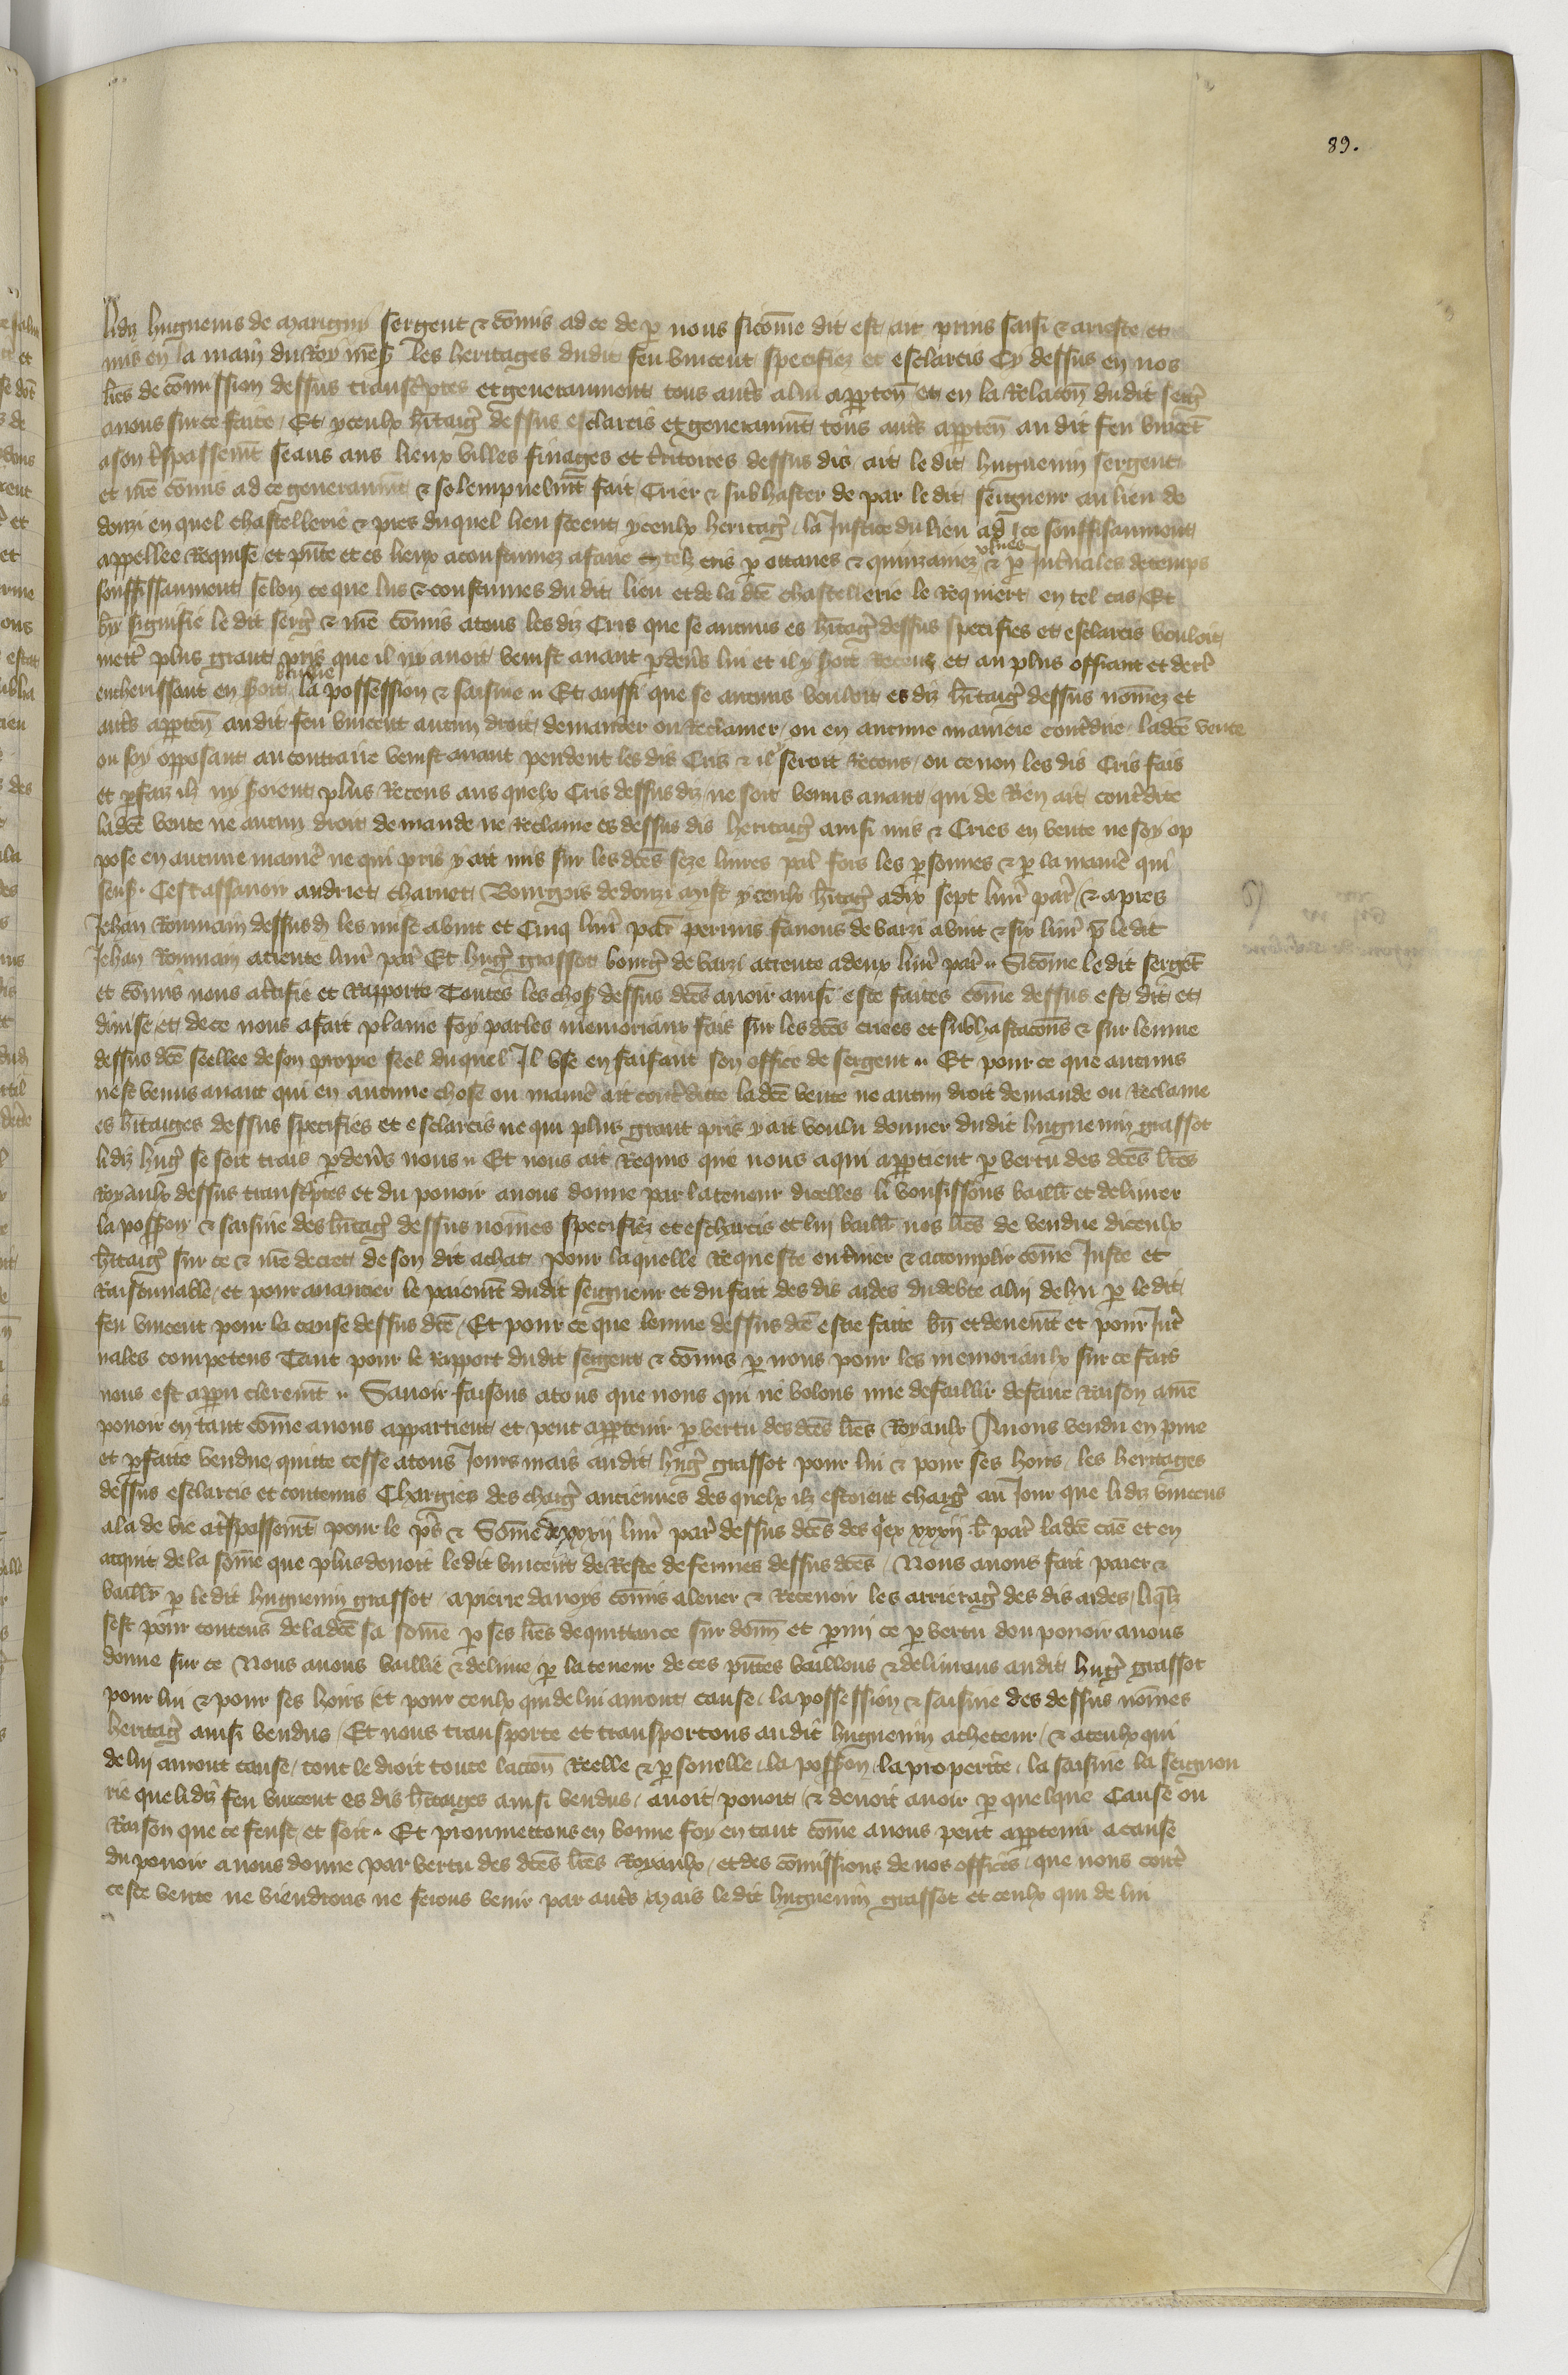 89.
lidiz huguenins de marigny sergent & cōmis ad ce de p nous sicōme dit est ait prins saisi & arreste et
mis en la main du Roy mess les heritages dudit feu vincent specifiez et esclarcis Cy dessus en nos
lres de cōmission dessus transcptes et generaument tous auts a lui apparten et en la Relacon dudit serg
a nous sur ce faite / Et yceulx hītaig dessus esclarcis et generaumt tous auts apparten au dit feu vincēt
a son trspassemt seans aus lieux villes finages et tritoires dessus dis ait le dit huguenin sergent
et mē cōmis ad ce generaumt & solempnelmt fait Crier & subhaster de par le dit seigneur au lieu de
donzi en quel chastellerie & pres duquel lieu sceent yceulx heritag la Justice du lieu ad ce souffisaument
appellee Requise et pnte et es lieux acoustumez a faire telz cris p octaues & quinzaines plues & p Intuales de temps
souffissaument selon ce que lus & coustumes du dit lieu et de la dce chastellerie le Requiert en tel cas / Et
signifie le dit serg & mē cōmis a tous les diz Cris que se aucuns es hītag dessus specifies et esclarcis vouloit
mett plus grant pris que il ny auoit venist auant p deuers lui et il y soit Receuz et au plus offrant et derr
encherissant en soit bailliee la possession & saisine Et aussi que se aucuns vouloit es diz hītaig dessus nōmez et
auts apparten au dit feu vincent aucun droit demander ou Reclamer / ou en aucune maniere contdire ladce vente
ou soy opposant au contraire venist auant pendent les dis Criz & il y seroit Receus / ou ce non les dis Cris fais
et pfaiz ilz ny soient plus Receus aus quelx Cris dessus diz ne soit venus auant qui de Rien ait contdite
ladce vente ne aucun droit demande ne Reclame es dessus dis heritaig ainsi mis & Cries en vente ne soy op
pose en aucune manie ne qui pris y ait mis sur les dces seze liures par fors les psonnes & p la manie qui
sens. Cest assauoir andriet charnet Bourgois de donzi mist yceulx hītaig a dix sept liur par / & apres
Jehan Roumain dessus d les mist a vint et Cinq liur par perrins fanons de varzi a vint & six liur p le dit
Jehan Roumain a trente liur par Et hug grassot bourg de varzi a trente a deux liur par Sicōme le dit sergēt
et cōmis nous a ctifie et Rapporte Toutes les chos dessus dces auoir ainsi este faites cōme dessus est dit et
diuise et de ce nous a fait plaine foy par les memoriaux fais sur les dces criees et subhastacons & sur lenuie
dessus dce scellee de son propre seel duquel Il vse en faisant son office de sergent Et pour ce que aucuns
nest venus auant qui en aucune chose ou manie ait contditte ladce vente ne aucun droit demande ou Reclame
es hītaiges dessus specifies et esclarcis ne qui pluz grant pris y ait voulu donner dudit huguenin grassot
lidiz hug se soit trais p deuers nous Et nous ait Requis que nous a qui appartient p vertu des dces lres
Royaulx dessus transcptes et du pouoir a nous donne par la teneur dicelles li vousissons baill et deliurer
la possion & saisine des hītag dessus nōmes specifiez et esclarcis et lui baill nos lres de vendue diceulx
hītaig sur ce & mē decret de son dit achat pour laquelle Requeste entriner & accomplir cōme Juste et
Raisonnable / et pour auancier le paiemt dudit seigneur et du fait des dis aides du debte a lui dehu p le dit
feu vincent pour la cause dessus dce / Et pour ce que lenuie dessus dce estre faite bn et deuemt et pour Int
uales competens Tant pour le Rapport dudit sergent & cōmis p nous pour les memoriaulx sur ce fais
nous est apparu cleremt Sauoir faisons a tous que nous qui ne volons mie defaillir de faire Raison a mē
pouoir en tant cōme a nous appartient et peut appartenir p vertu des dces lres Royaulx Auons vendu en pure
et pfaite vendue quitte cesse a tous Jours mais au dit hug grassot pour lui & pour ses hoirs les heritages
dessus esclarcis et contenus Chargies des charg anciennes des quelx ilz estoient charg au Jour que lidiz vincens
ala de vie a trspassemt pour le ps & Sōme de xxxij liur par dessus dces des qex xxxij l par ladce caē et en
acquit de la sōme que plus deuoit le dit vincent de Reste de fermes dessus dces / Nous auons fait paier &
baill p le dit huguenin grassot a pierre danoys cōmis a leuer & Receuoir les arrierag des dis aides / liqlz
sest pour contens de ladce sa sōme p ses lres de quittance sur donn et pmi ce p vertu dou pouoir a nous
donne sur ce Nous auons baillie & deliure p la teneur de ces pntes baillons & deliurons au dit hug grassot
pour lui & pour ses hoirs et pour ceulx qui de lui auront cause / la possession & saisine des dessus nōmes
heritag ainsi vendus / Et nous transporte et transportons au dit huguenin acheteur / & a ceulx qui
de lui auront cause / tout le droit toute laccon Reelle & psonelle / la possion / la properite / la saisine la seignou
rie que lidiz feu vincent es dis hītaiges ainsi vendus / auoit pouoit / & deuoit auoir p quelque Cause ou
Raison que ce feust et soit. Et proumettons en bonne foy en tant cōme a nous peut appartenir a cause
du pouoir a nous donne par vertu des dces lres Royaulx / et des cōmissions de nos offices / que nous cont
ceste vente ne viendrons ne ferons venir par auts Mais le dit huguenin grassot et ceulx qui de lui